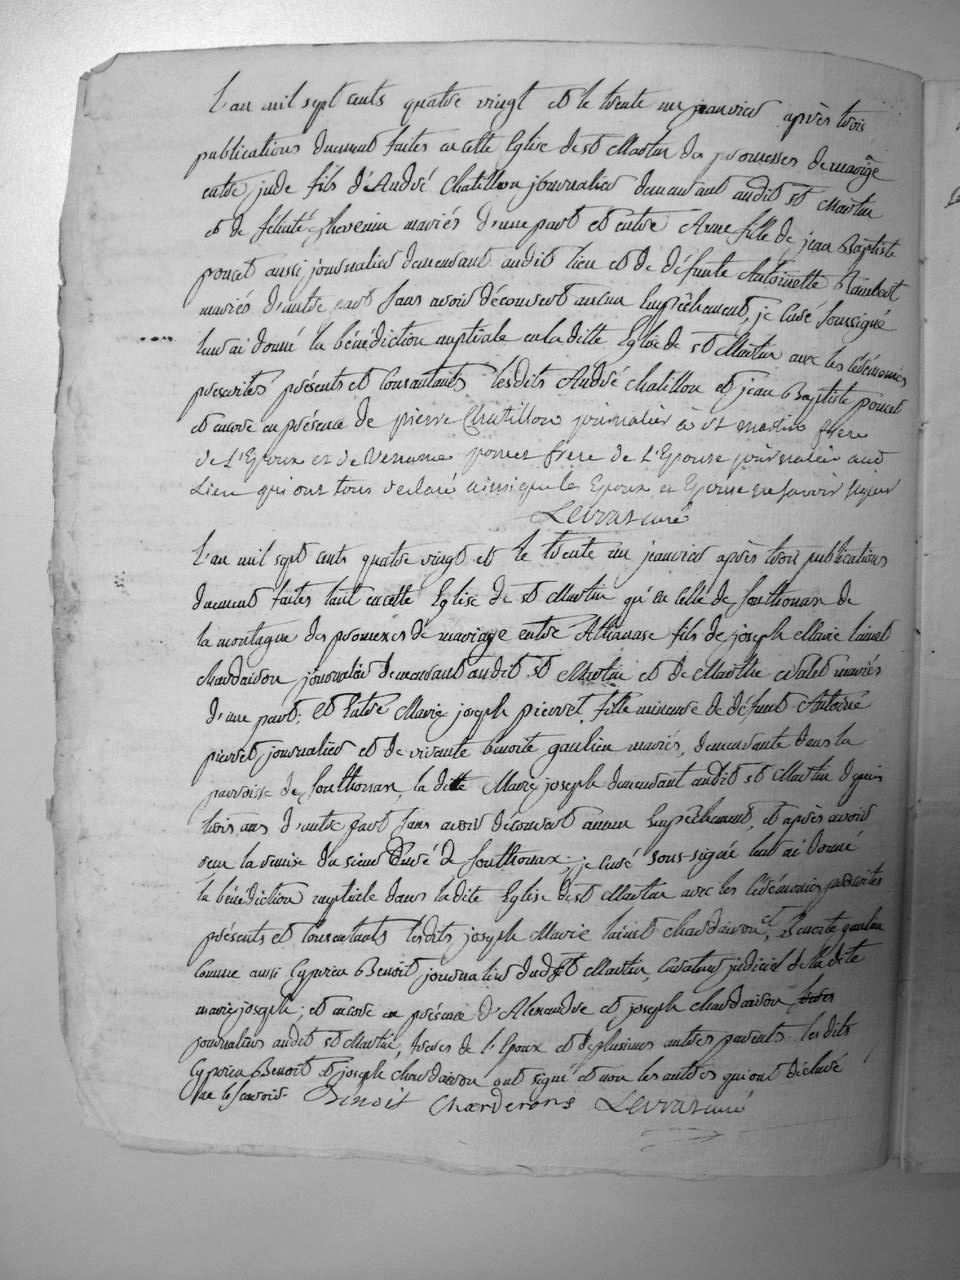 L'an mil sept cents quatre vingt et le trente un janvier après trois
publications duement faites en cette Eglise de st Martin des promesses de mariage
entre jude fils d'André Chatillon journalier demeurant audit st Martin
et de félicité thevenin mariés d'une part et entre Anne fille de jean Baptiste
poncet aussi journalier demeurant audit lieu et de défunte Antoinette Rambert
mariés d'autre part sans avoir découvert aucun Empêchement, je Curé soussigné
leur ai donné la bénédiction nuptiale en la ditte Eglise de st Martin avec les Cérémonies
prescrites présents et Consentants lesdits André chatillon et jean Baptiste poncet
et encore en présence de pierre Chatillon journalier à st martin frere
de L'Epoux et de poncet frere de L'Epouse journalier aud
Lieu qui ont tous declaré ainsique les Epoux et Epouse ne savoir signer
Levrat curé
L'an mil sept cents quatre vingt et le trente un janvier après trois publications
duement faites tant en cette Eglise de st Martin qu'en celle de fonthonax de
la montagne des promesses de mariage entre Athanase fils de joseph Marie laint
chardairon journalier demeurant audit st Martin et de Marthe mariés
d'une part; et Entre Marie joseph pierret fille mineure de défunt Antoine
pierret journalier et de vivante benoite gaulien mariés, demeurante dans la
parroisse de fonthonax, la ditte Marie joseph demeurant audit st Martin depuis
trois ans d'autre part sans avoir découvert aucun Empêchement, et après avoir
veu la remise du sieur Curé de fonthonax, je Curé sous-signé leur ai donné
la bénédiction nuptiale dans ladite Eglise de st Martin avec les Cérémonies prescrites
présents et Consentants lesdits joseph Marie laint chardairon et Benoite gaulien
Comme aussi Cyprien Benoit journalier dud st Martin, Curateur judiciel de la dite
marie joseph; et encore en présence d'Alexandre et joseph chardairon
journaliers audit st Martin, freres de l'Epoux et de plusieurs autres parents lesdits
Cyprien Benoit et joseph chardairon ont signé et non les autres qui ont déclaré
ne le savoir Benoit Charderons Levrat curé